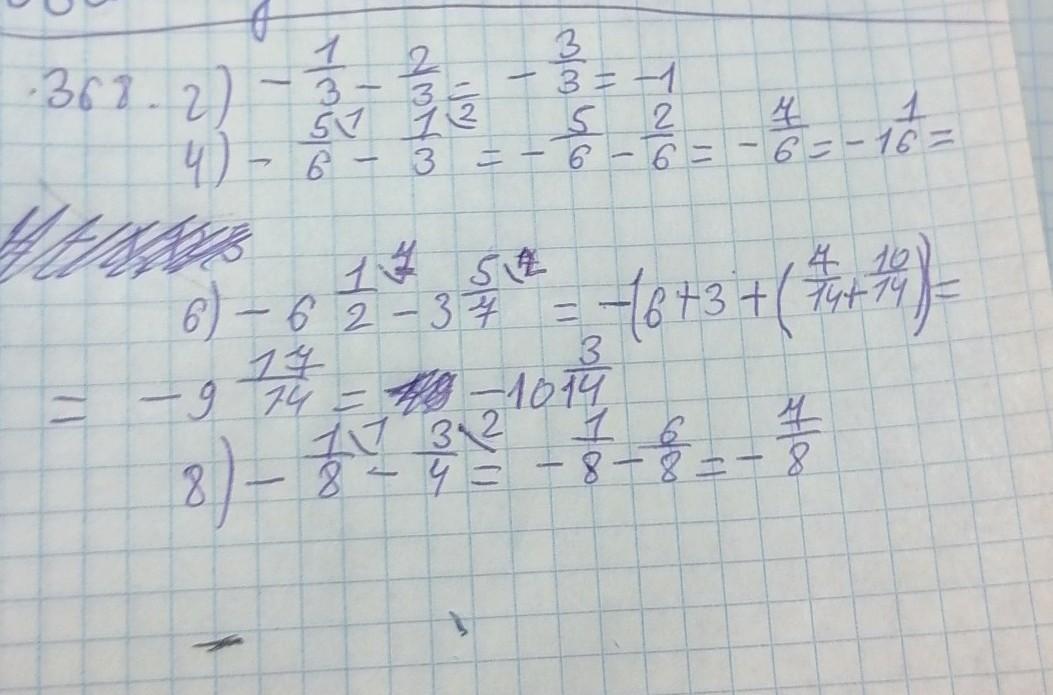 .368. 2) - 1/3 - 2/3 = - 3/3 = -1
4) - 5/6 \1 - 1/3 \2 = - 5/6 - 2/6 = - 7/6 = -1 1/6 =
6) - 6 1/2 \7 - 3 5/7 \2 = -(6+3+(7/14+10/14)) =
= -9 17/14 = -10 3/14
8) - 1/8 \1 - 3/4 \2 = - 1/8 - 6/8 = - 7/8